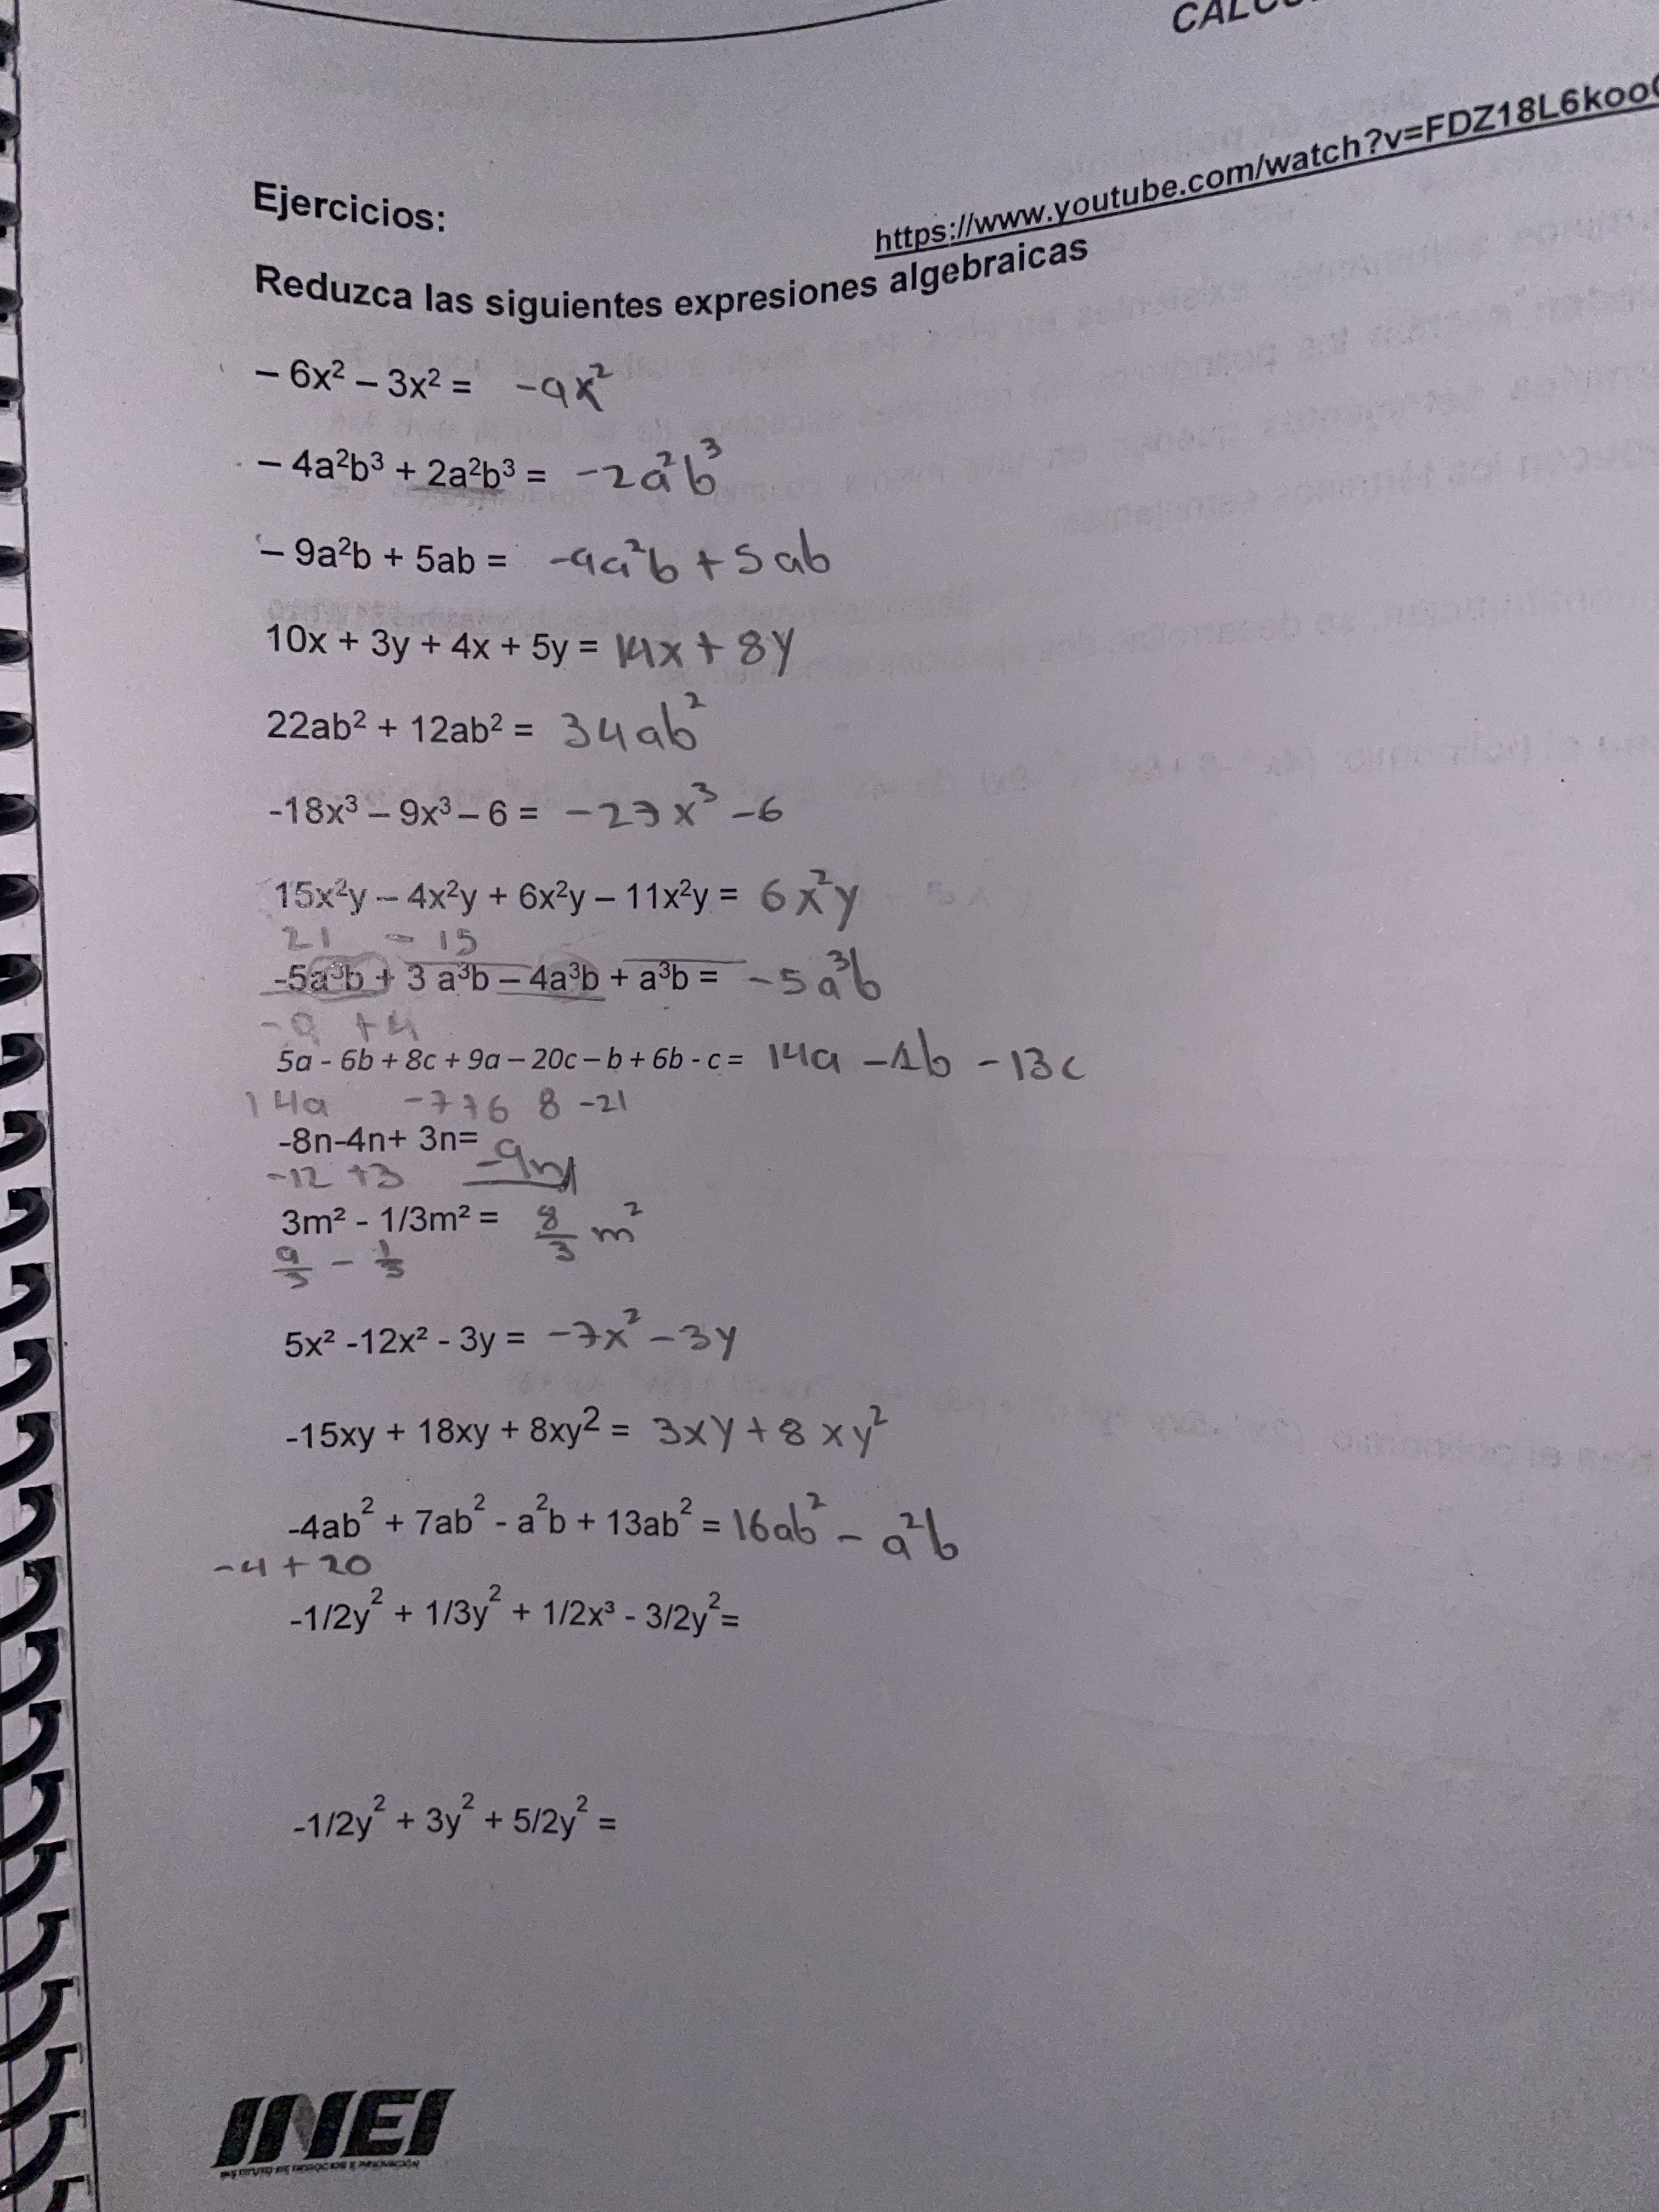 CALCU
https://www.youtube.com/watch?v=FDZ18L6koo
Ejercicios:
Reduzca las siguientes expresiones algebraicas
– 6x² – 3x² = -9x²
– 4a²b³ + 2a²b³ = -2a²b³
– 9a²b + 5ab = -9a²b + 5ab
10x + 3y + 4x + 5y = 14x + 8y
22ab² + 12ab² = 34ab²
-18x³ – 9x³ – 6 = -27x³ -6
15x²y – 4x²y + 6x²y – 11x²y = 6x²y
21 - 15
-5a³b + 3 a³b – 4a³b + a³b = -5a³b
-9 +4
5a - 6b + 8c + 9a – 20c – b + 6b - c = 14a -1b -13c
14a -7+6 8 -21
-8n-4n+ 3n= -9n
-12 +3
3m² - 1/3m² = 8/3 m²
9/3 - 1/3
5x² -12x² - 3y = -7x² -3y
-15xy + 18xy + 8xy² = 3xy + 8xy²
-4ab² + 7ab² - a²b + 13ab² = 16ab² - a²b
-4 + 20
-1/2y² + 1/3y² + 1/2x³ - 3/2y²=
-1/2y² + 3y² + 5/2y² =
INEI
INSTITUTO DE NEGOCIOS E INNOVACIÓN